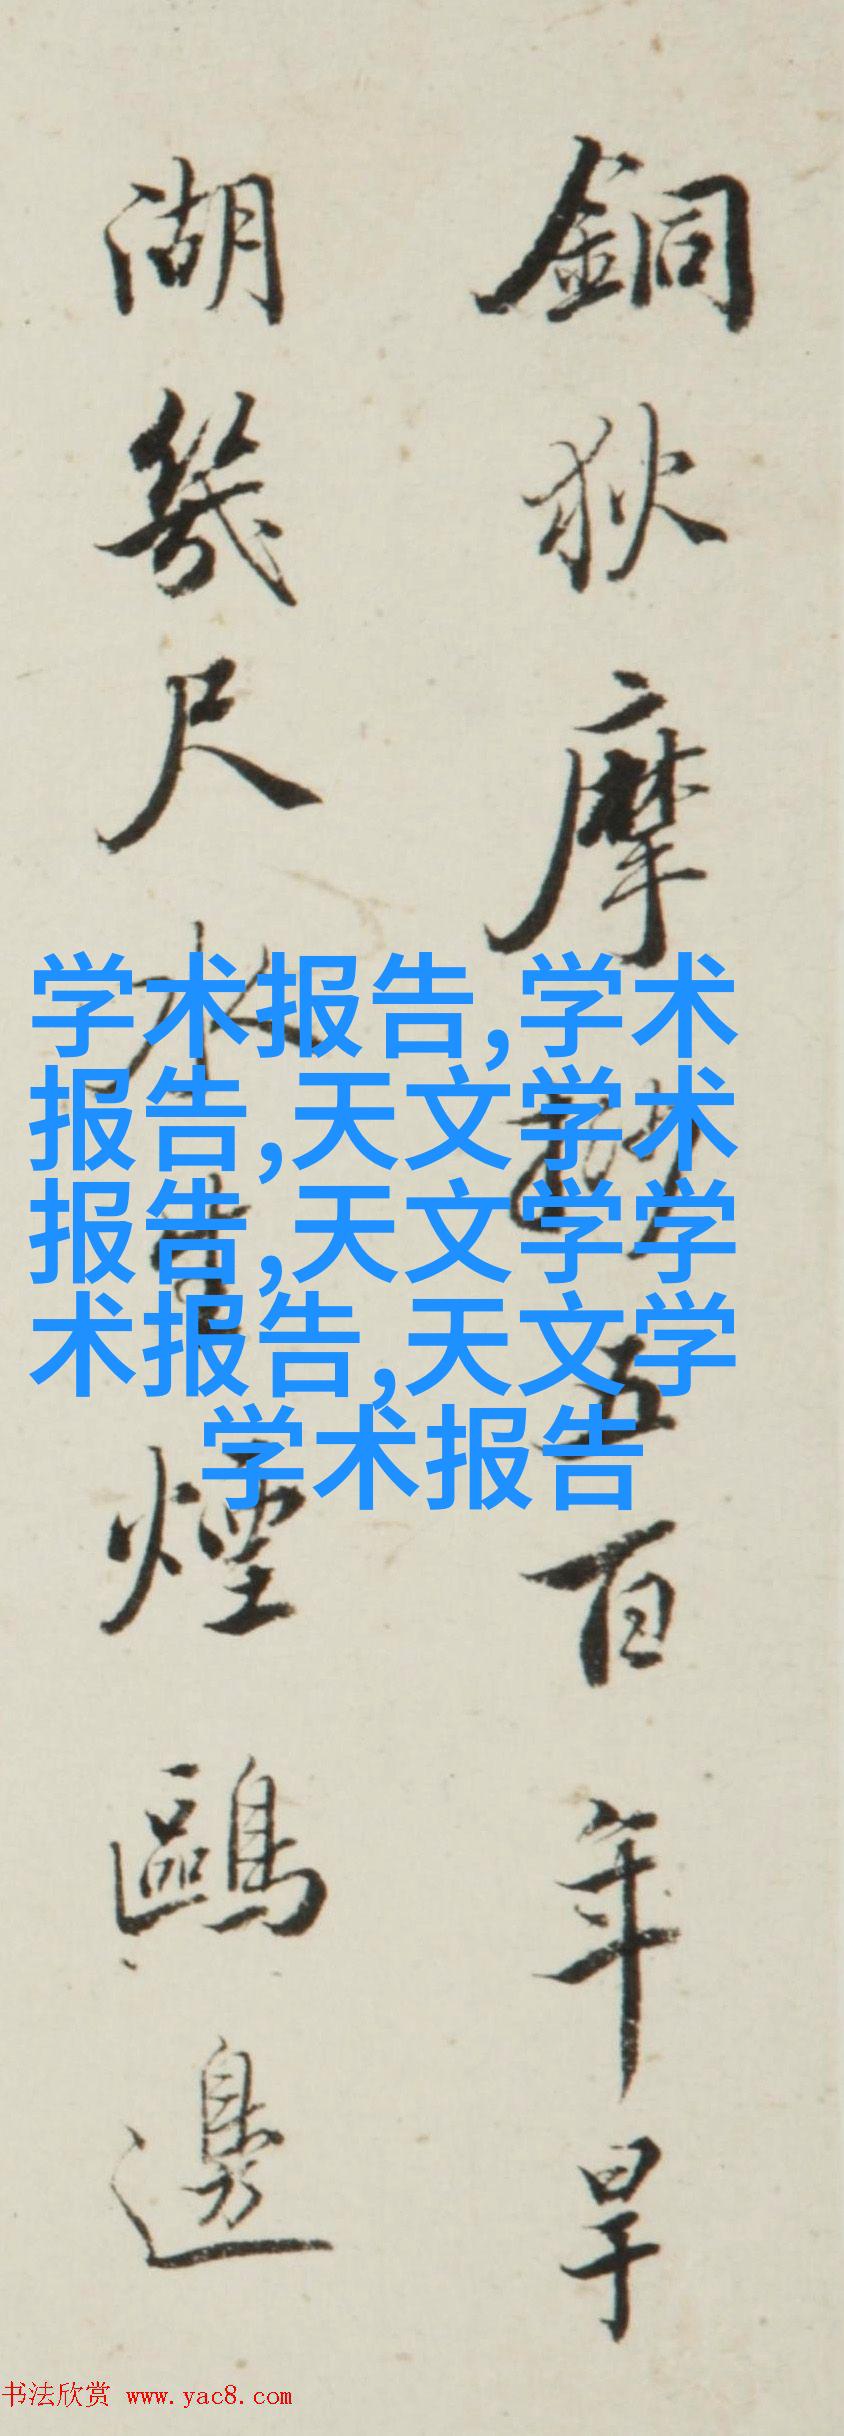 銅狄摩挲五百年旱
湖幾尺水生煙鷗邊
学术报告,学术
报告,天文学术
报告,天文学学
术报告,天文学
学术报告
书法欣赏 www.yac8.com